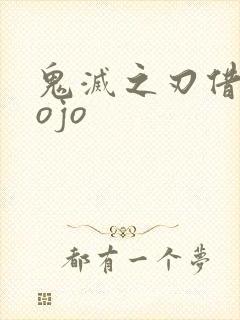 鬼滅之刃借
ojo
都有一个夢